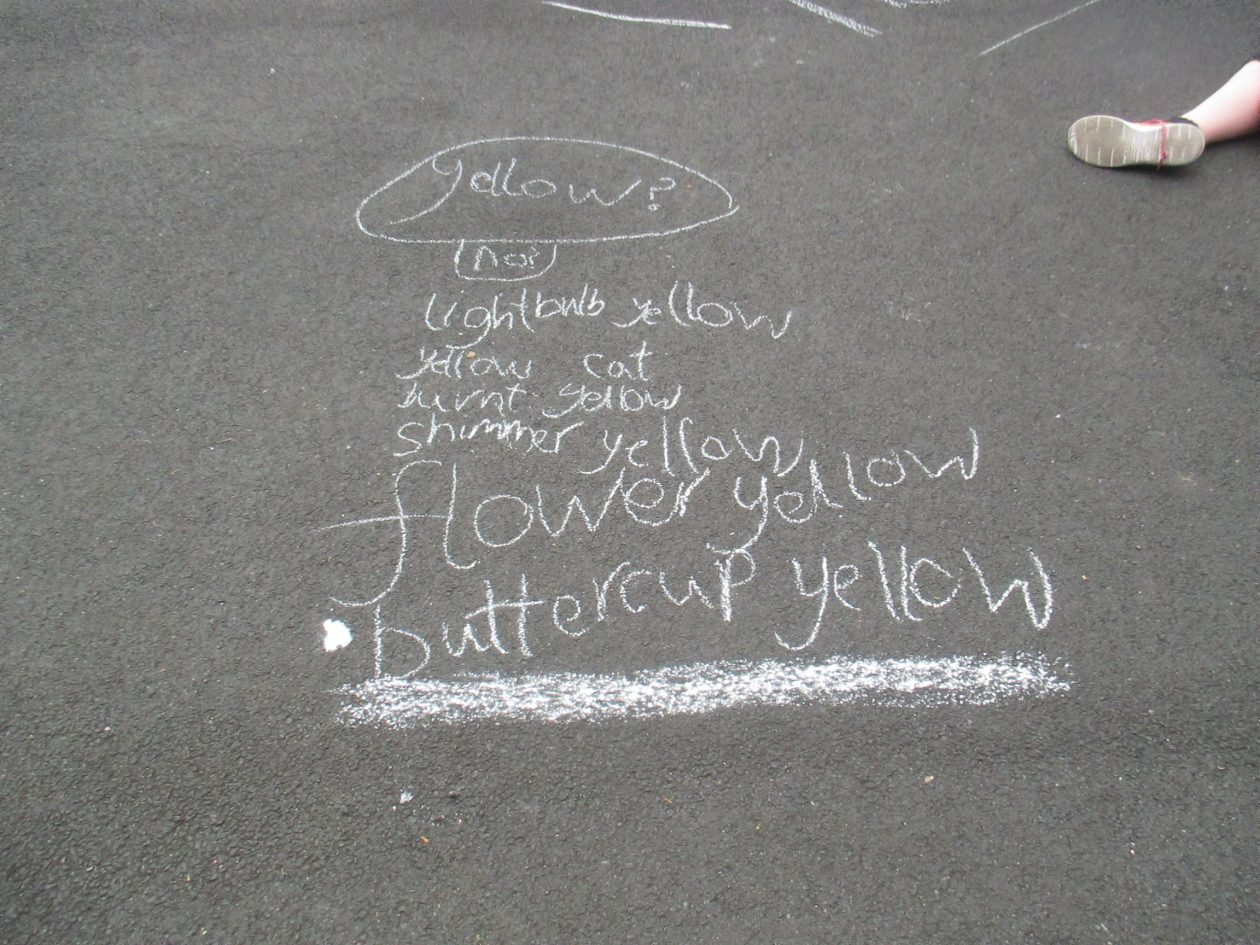 yellow?
no!
lightbulb yellow
yellow cat
burnt yellow
shimmer yellow
flower yellow
buttercup yellow